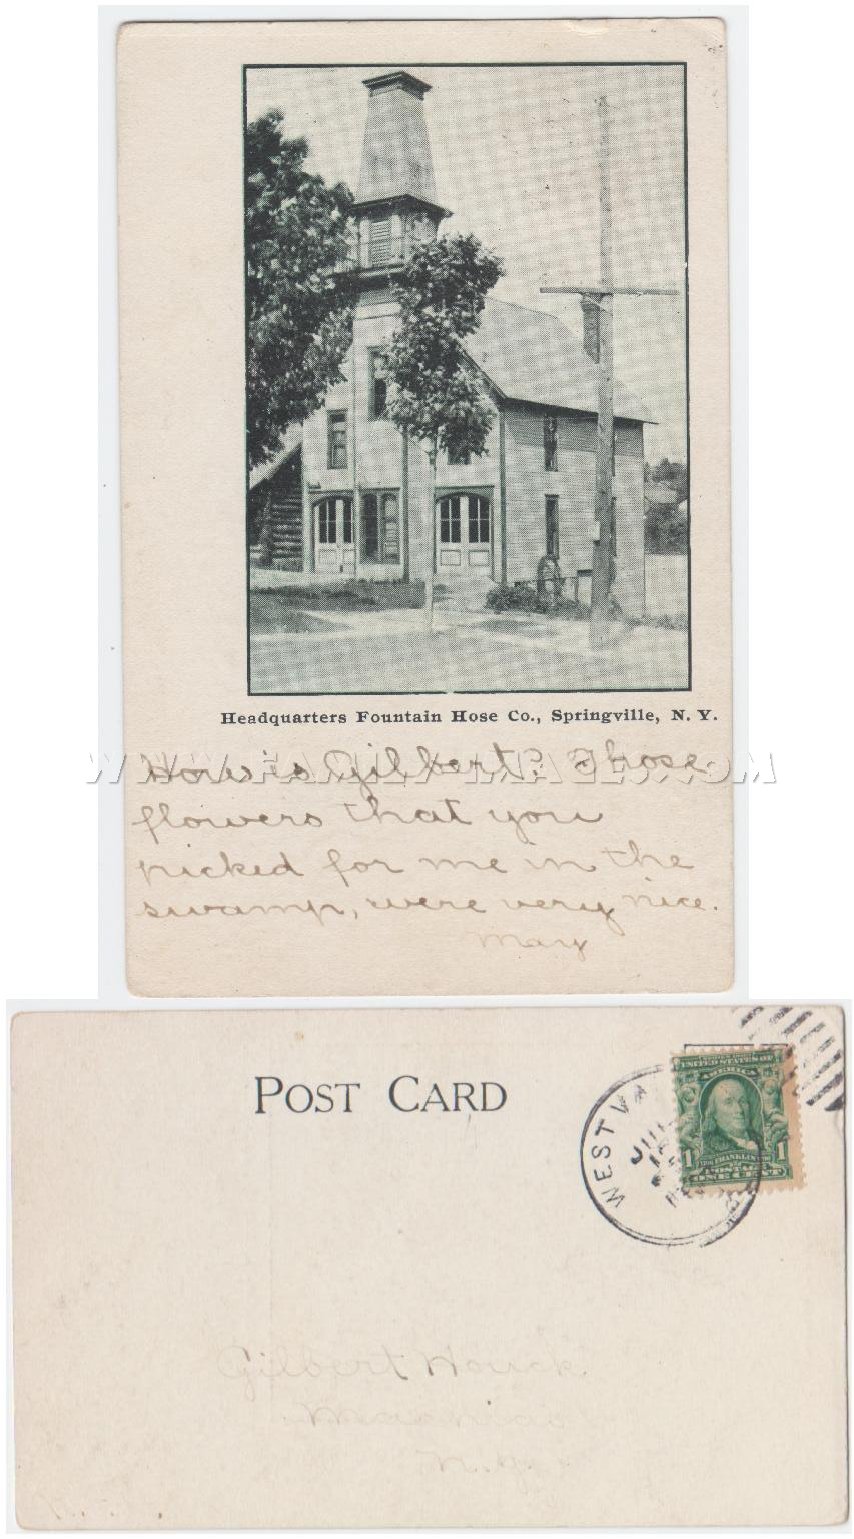 Headquarters Fountain Hose Co., Springville, N. Y.
WWW.FAMILY-IMAGES.COM
How is Gilbert? Those
flowers that you
picked for me in the
swamp, were very nice.
May
POST CARD
WESTVA
UNITED STATES OF
AMERICA
1 1
FRANKLIN
POSTAGE
ONE CENT
Gilbert Houck
N.Y.